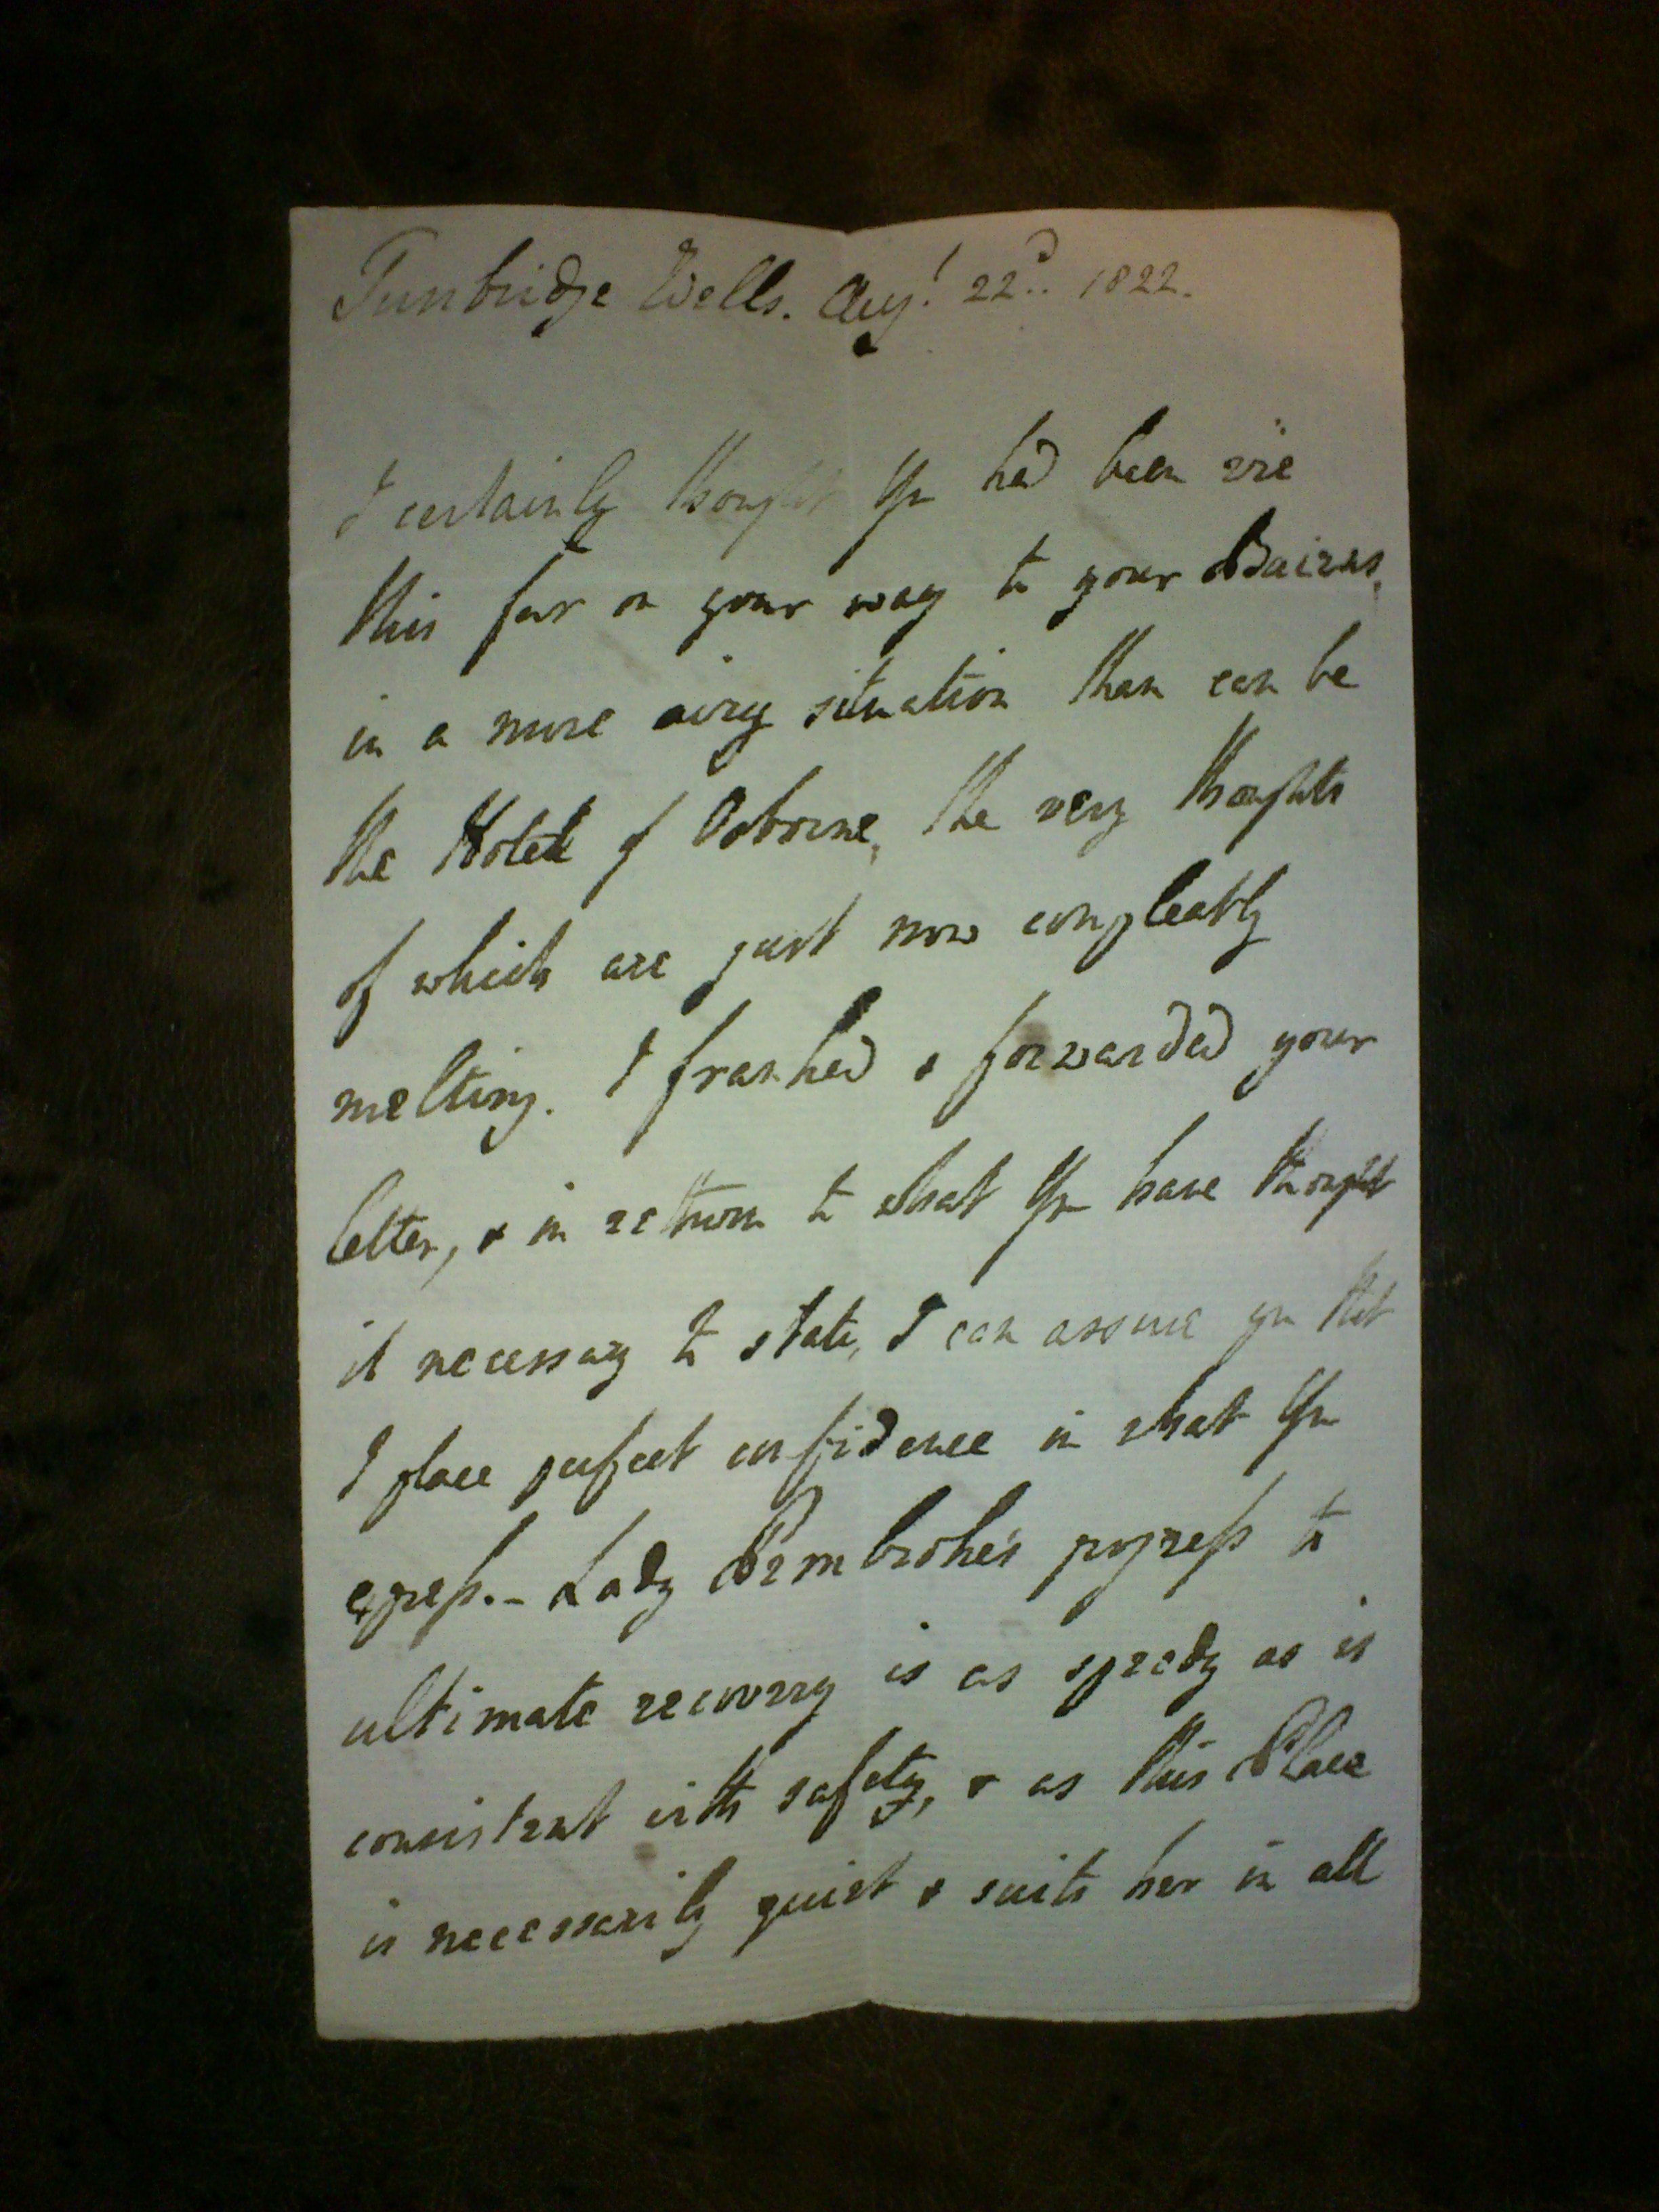 Tunbridge Wells. Augt. 22d. 1822.
I certainly thought you had been ere
this far on your way to your Bairns,
in a more airy situation than can be
the Hotel of Osborne, the very thoughts
of which are just now compleatly
melting. I franked & forwarded your
letter, & in return to what you have thought
it necessary to state, I can assure you that
I place perfect confidence in what you
express. - Lady Pembroke's progress to
ultimate recovery is as speedy as is
consistent with safety, & as this Place
is necessarily quiet & suits her in all